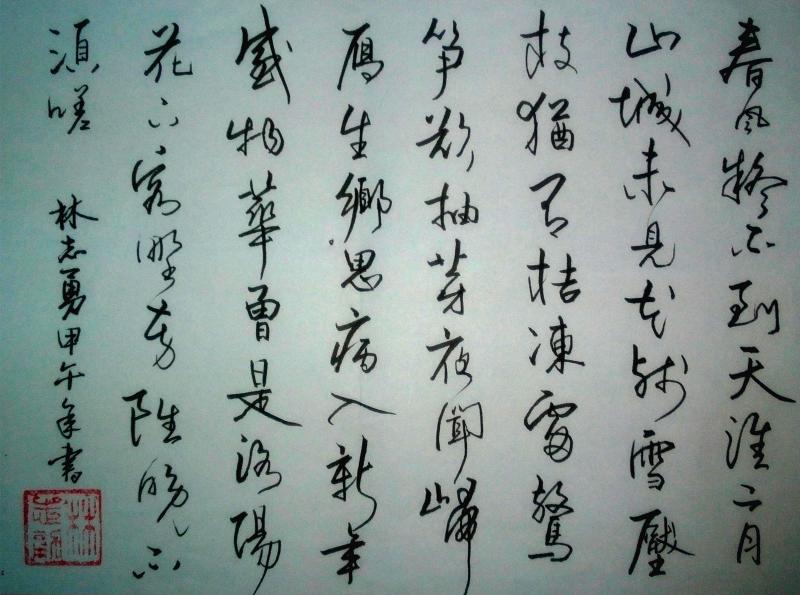 春風疑不到天涯二月
山城未見花殘雪壓
枝猶有桔凍雷驚
筍欲抽芽夜聞歸
鴈生鄉思病入新年
感物華曾是洛陽
花下客野芳雖晚不
須嗟
林志勇甲午年書